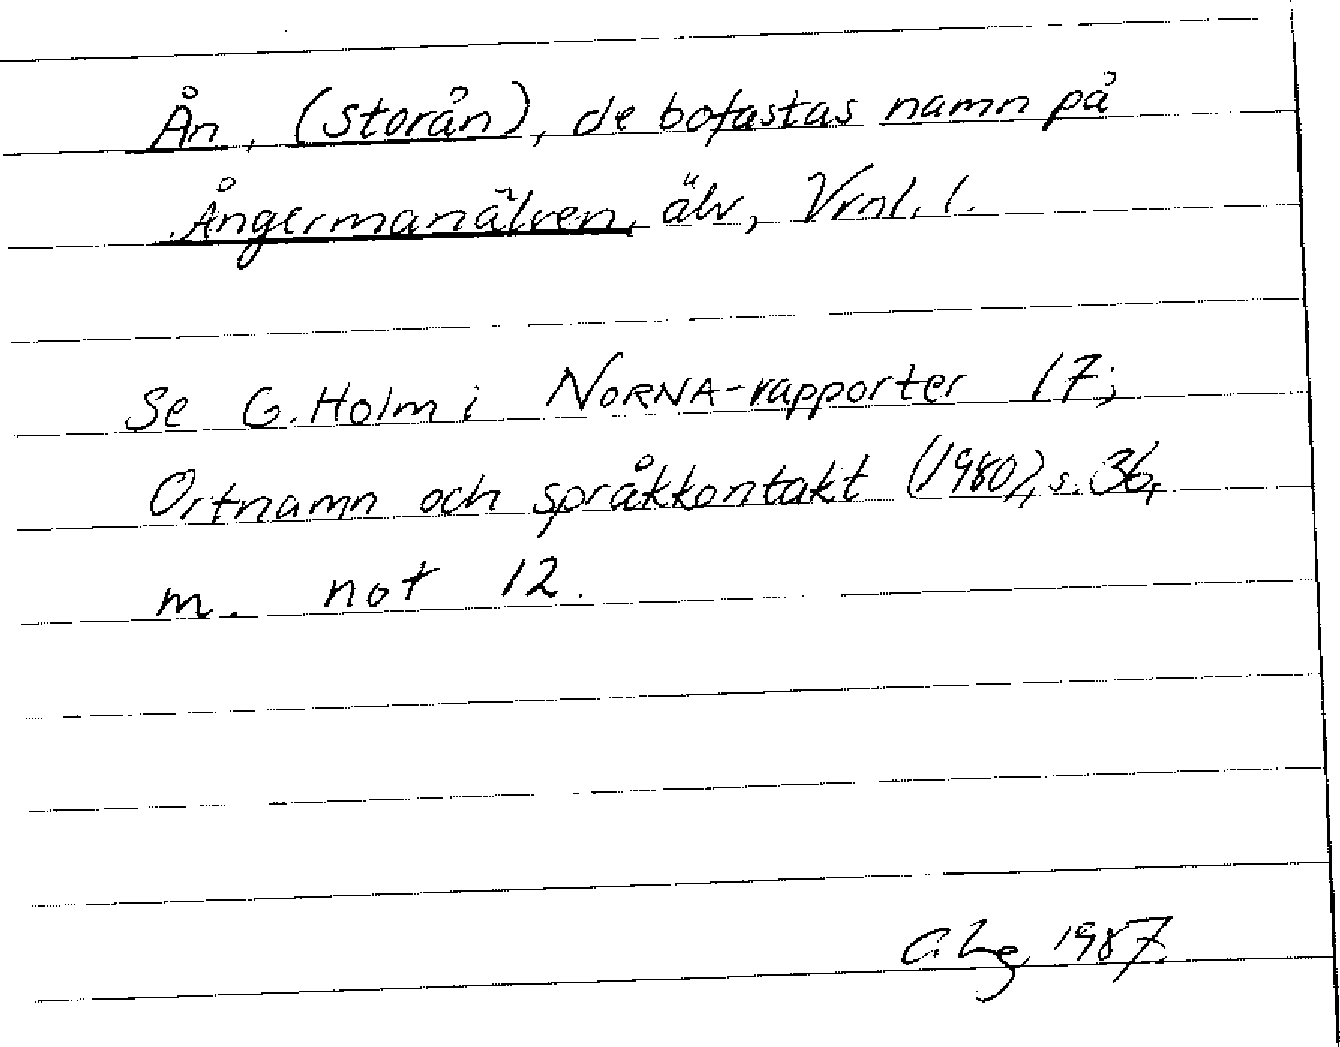 Ån, (Storån), de bofastas namn på
Ångermanälven, älv, Vrnl. l.
Se G. Holm i NORNA-rapporter 17;
Ortnamn och språkkontakt (1980), s. 36,
m. not 12.
1987